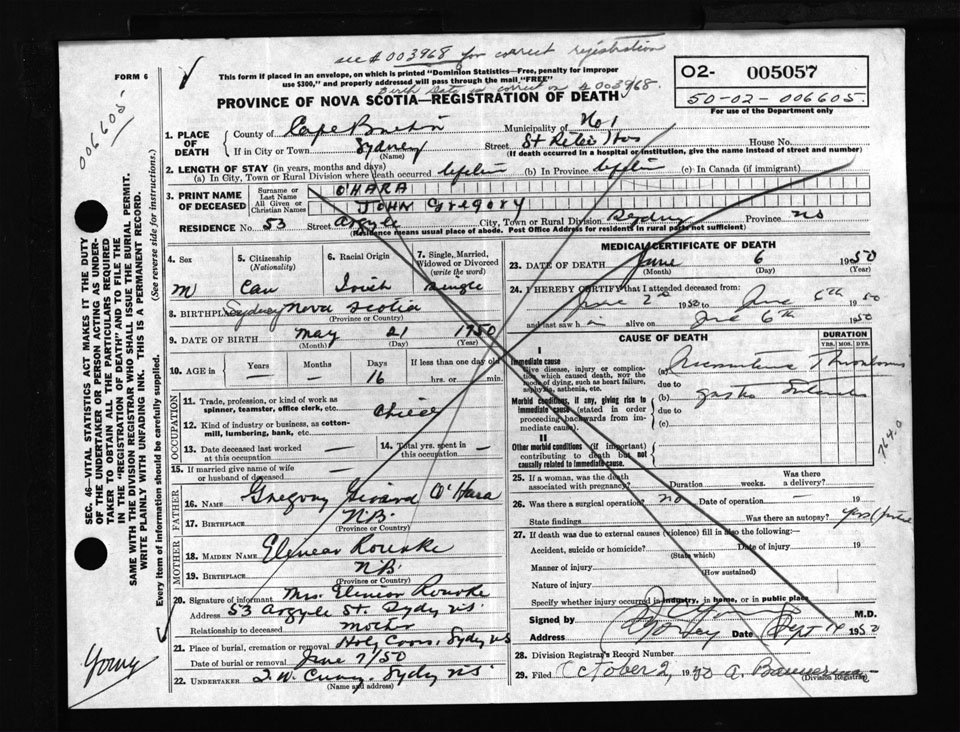 see # 003968 for correct registration
FORM 6
This form if placed in an envelope, on which is printed "Dominion Statistics—Free, penalty for improper
use $300," and properly addressed will pass through the mail "FREE"
Birth date is correct on # 003968.
O2- 005057
50-02-006605.
For use of the Department only
006605
PROVINCE OF NOVA SCOTIA—REGISTRATION OF DEATH
1. PLACE OF DEATH
County of Cape Breton Municipality of No 1
If in City or Town Sydney Street St Rita's Hos House No.
(Name) (If death occurred in a hospital or institution, give the name instead of street and number)
2. LENGTH OF STAY (in years, months and days)
(a) In City, Town or Rural Division where death occurred lifetime (b) In Province lifetime (c) In Canada (if immigrant)
3. PRINT NAME OF DECEASED
Surname or Last Name O'HARA
All Given or Christian Names JOHN Gregory
RESIDENCE No. 53 Street Argyle City, Town or Rural Division Sydney Province NS
(Residence means usual place of abode. Post Office Address for residents in rural parts not sufficient)
4. Sex M
5. Citizenship (Nationality) Can
6. Racial Origin Irish
7. Single, Married, Widowed or Divorced (write the word) Single
8. BIRTHPLACE Sydney Nova Scotia
(Province or Country)
9. DATE OF BIRTH May 21 1950
(Month) (Day) (Year)
10. AGE in Years — Months — Days 16 If less than one day old hrs. or min.
OCCUPATION
11. Trade, profession, or kind of work as spinner, teamster, office clerk, etc.
12. Kind of industry or business, as cotton-mill, lumbering, bank, etc.
13. Date deceased last worked at this occupation —
14. Total yrs. spent in this occupation —
15. If married give name of wife or husband of deceased —
FATHER
16. NAME Gregory Girard O'Hara
17. BIRTHPLACE N.B.
(Province or Country)
MOTHER
18. MAIDEN NAME Elinear Rourke
19. BIRTHPLACE N.B.
(Province or Country)
20. Signature of informant Mrs. Elinior Rourke
Address 53 Argyle St. Sydy NS.
Relationship to deceased mother
21. Place of burial, cremation or removal Holy Cross, Sydy NS
Date of burial or removal June 7/50
22. UNDERTAKER T. W. Curry. Sydy NS
(Name and address)
MEDICAL CERTIFICATE OF DEATH
23. DATE OF DEATH June 6 1950
(Month) (Day) (Year)
24. I HEREBY CERTIFY that I attended deceased from:
June 2nd 1950 to June 6th 1950
and last saw h alive on June 6th 1950
CAUSE OF DEATH
DURATION
YRS. MOS. DYS.
I
Immediate cause
Give disease, injury or complication which caused death, not the mode of dying, such as heart failure, asphyxia, asthenia, etc.
(a)
due to
Morbid conditions, if any, giving rise to immediate cause (stated in order proceeding backwards from immediate cause).
(b) gastro
due to
(c)
II
Other morbid conditions (if important) contributing to death but not causally related to immediate cause.
764.0
25. If a woman, was the death associated with pregnancy? Duration weeks. Was there a delivery?
26. Was there a surgical operation? no Date of operation — 19
State findings Was there an autopsy? yes
27. If death was due to external causes (violence) fill in also the following:
Accident, suicide or homicide? Date of injury 19
(State which)
Manner of injury
(How sustained)
Nature of injury
Specify whether injury occurred in industry, in home, or in public place
Signed by M.D.
Address Date Sept 1950
28. Division Registrar's Record Number
29. Filed October 2, 1950 A.
(Division Registrar)
SEC. 46—VITAL STATISTICS ACT MAKES IT THE DUTY
OF THE UNDERTAKER OR PERSON ACTING AS UNDER-
TAKER TO OBTAIN ALL THE PARTICULARS REQUIRED
IN THE "REGISTRATION OF DEATH" AND TO FILE THE
SAME WITH THE DIVISION REGISTRAR WHO SHALL ISSUE THE BURIAL PERMIT.
WRITE PLAINLY WITH UNFADING INK. THIS IS A PERMANENT RECORD.
Every item of information should be carefully supplied. (See reverse side for instructions.)
Young